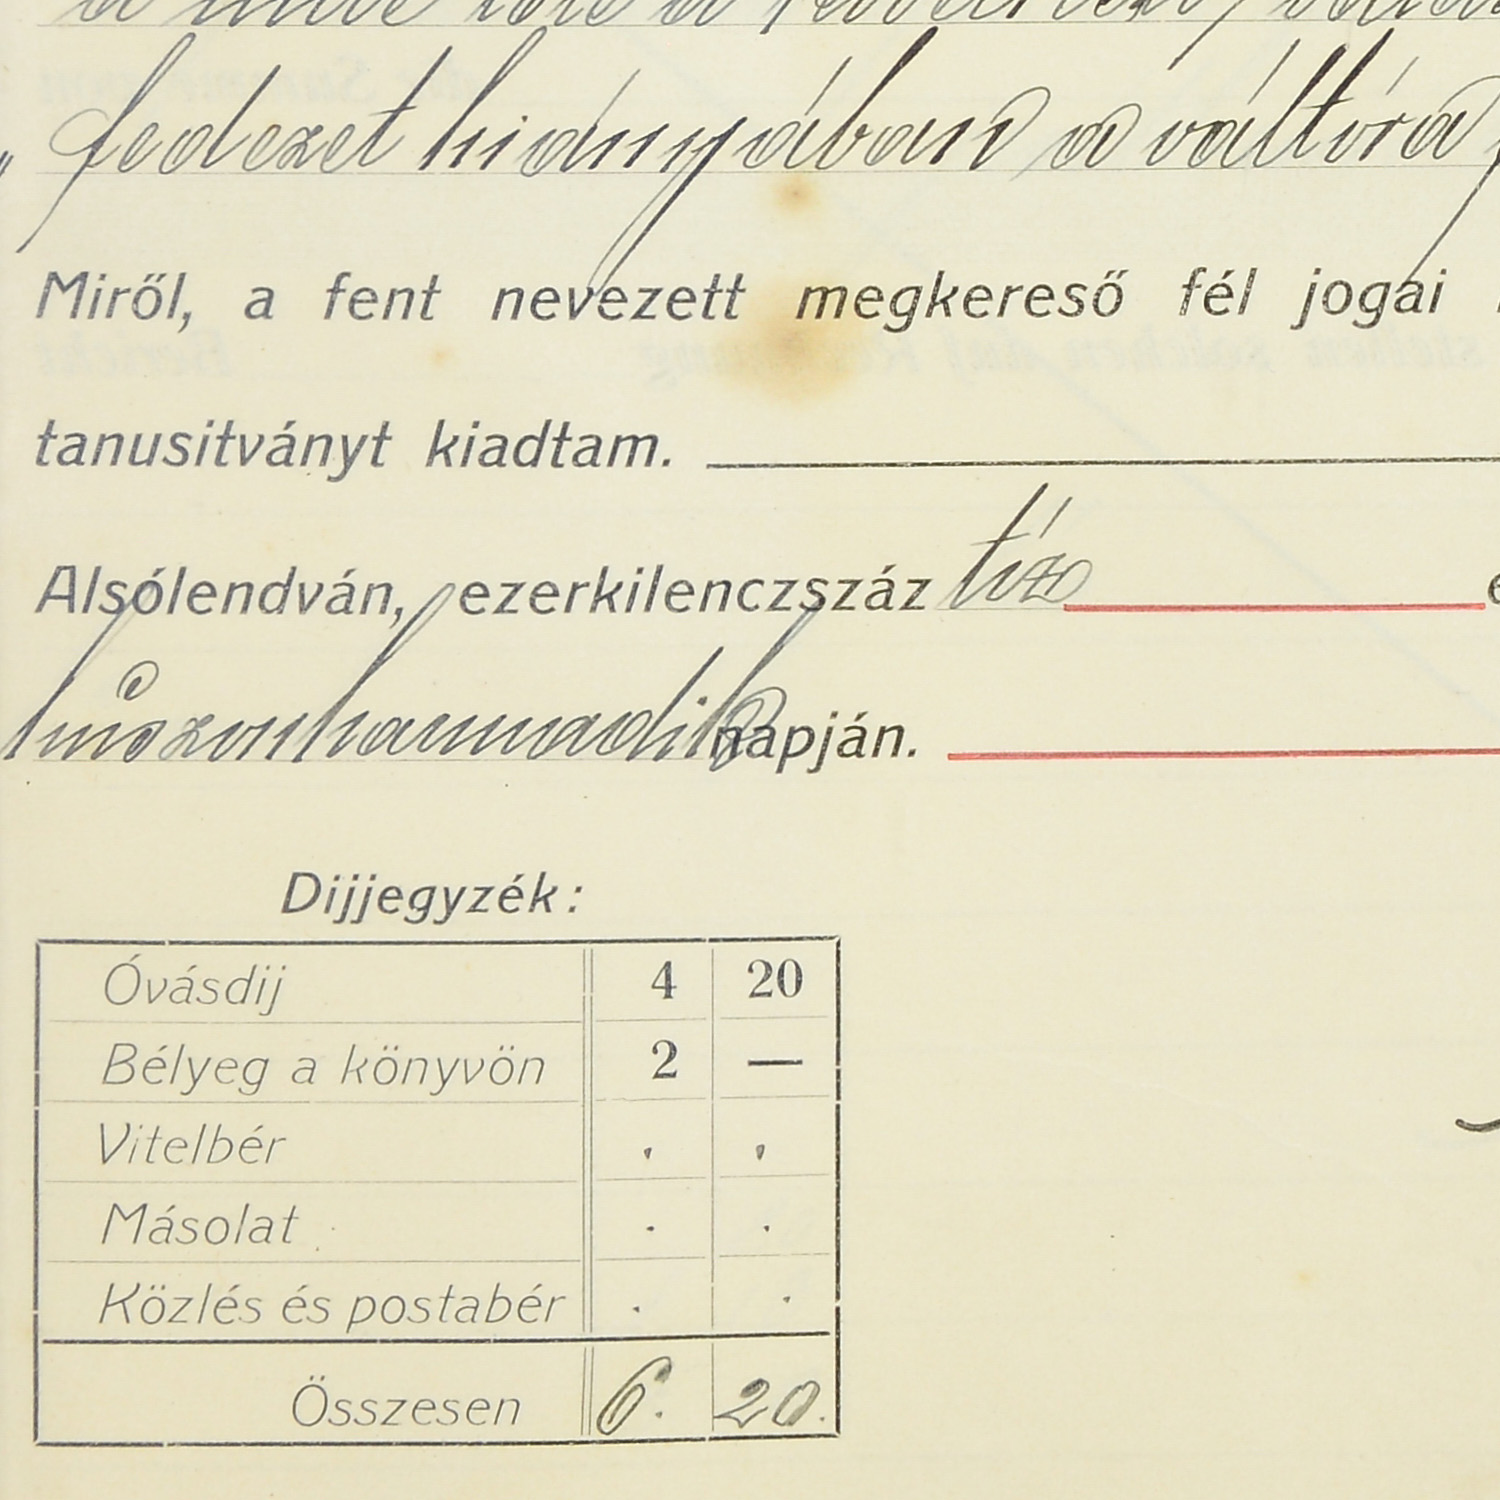 fedezet hiányában a váltóra
Miről, a fent nevezett megkereső fél jogai
tanusitványt kiadtam.
Alsólendván, ezerkilenczszáz tíz
huszonharmadik napján.
Dijjegyzék:
Óvásdij 4 20
Bélyeg a könyvön 2 —
Vitelbér . .
Másolat . .
Közlés és postabér . .
Összesen 6. 20.